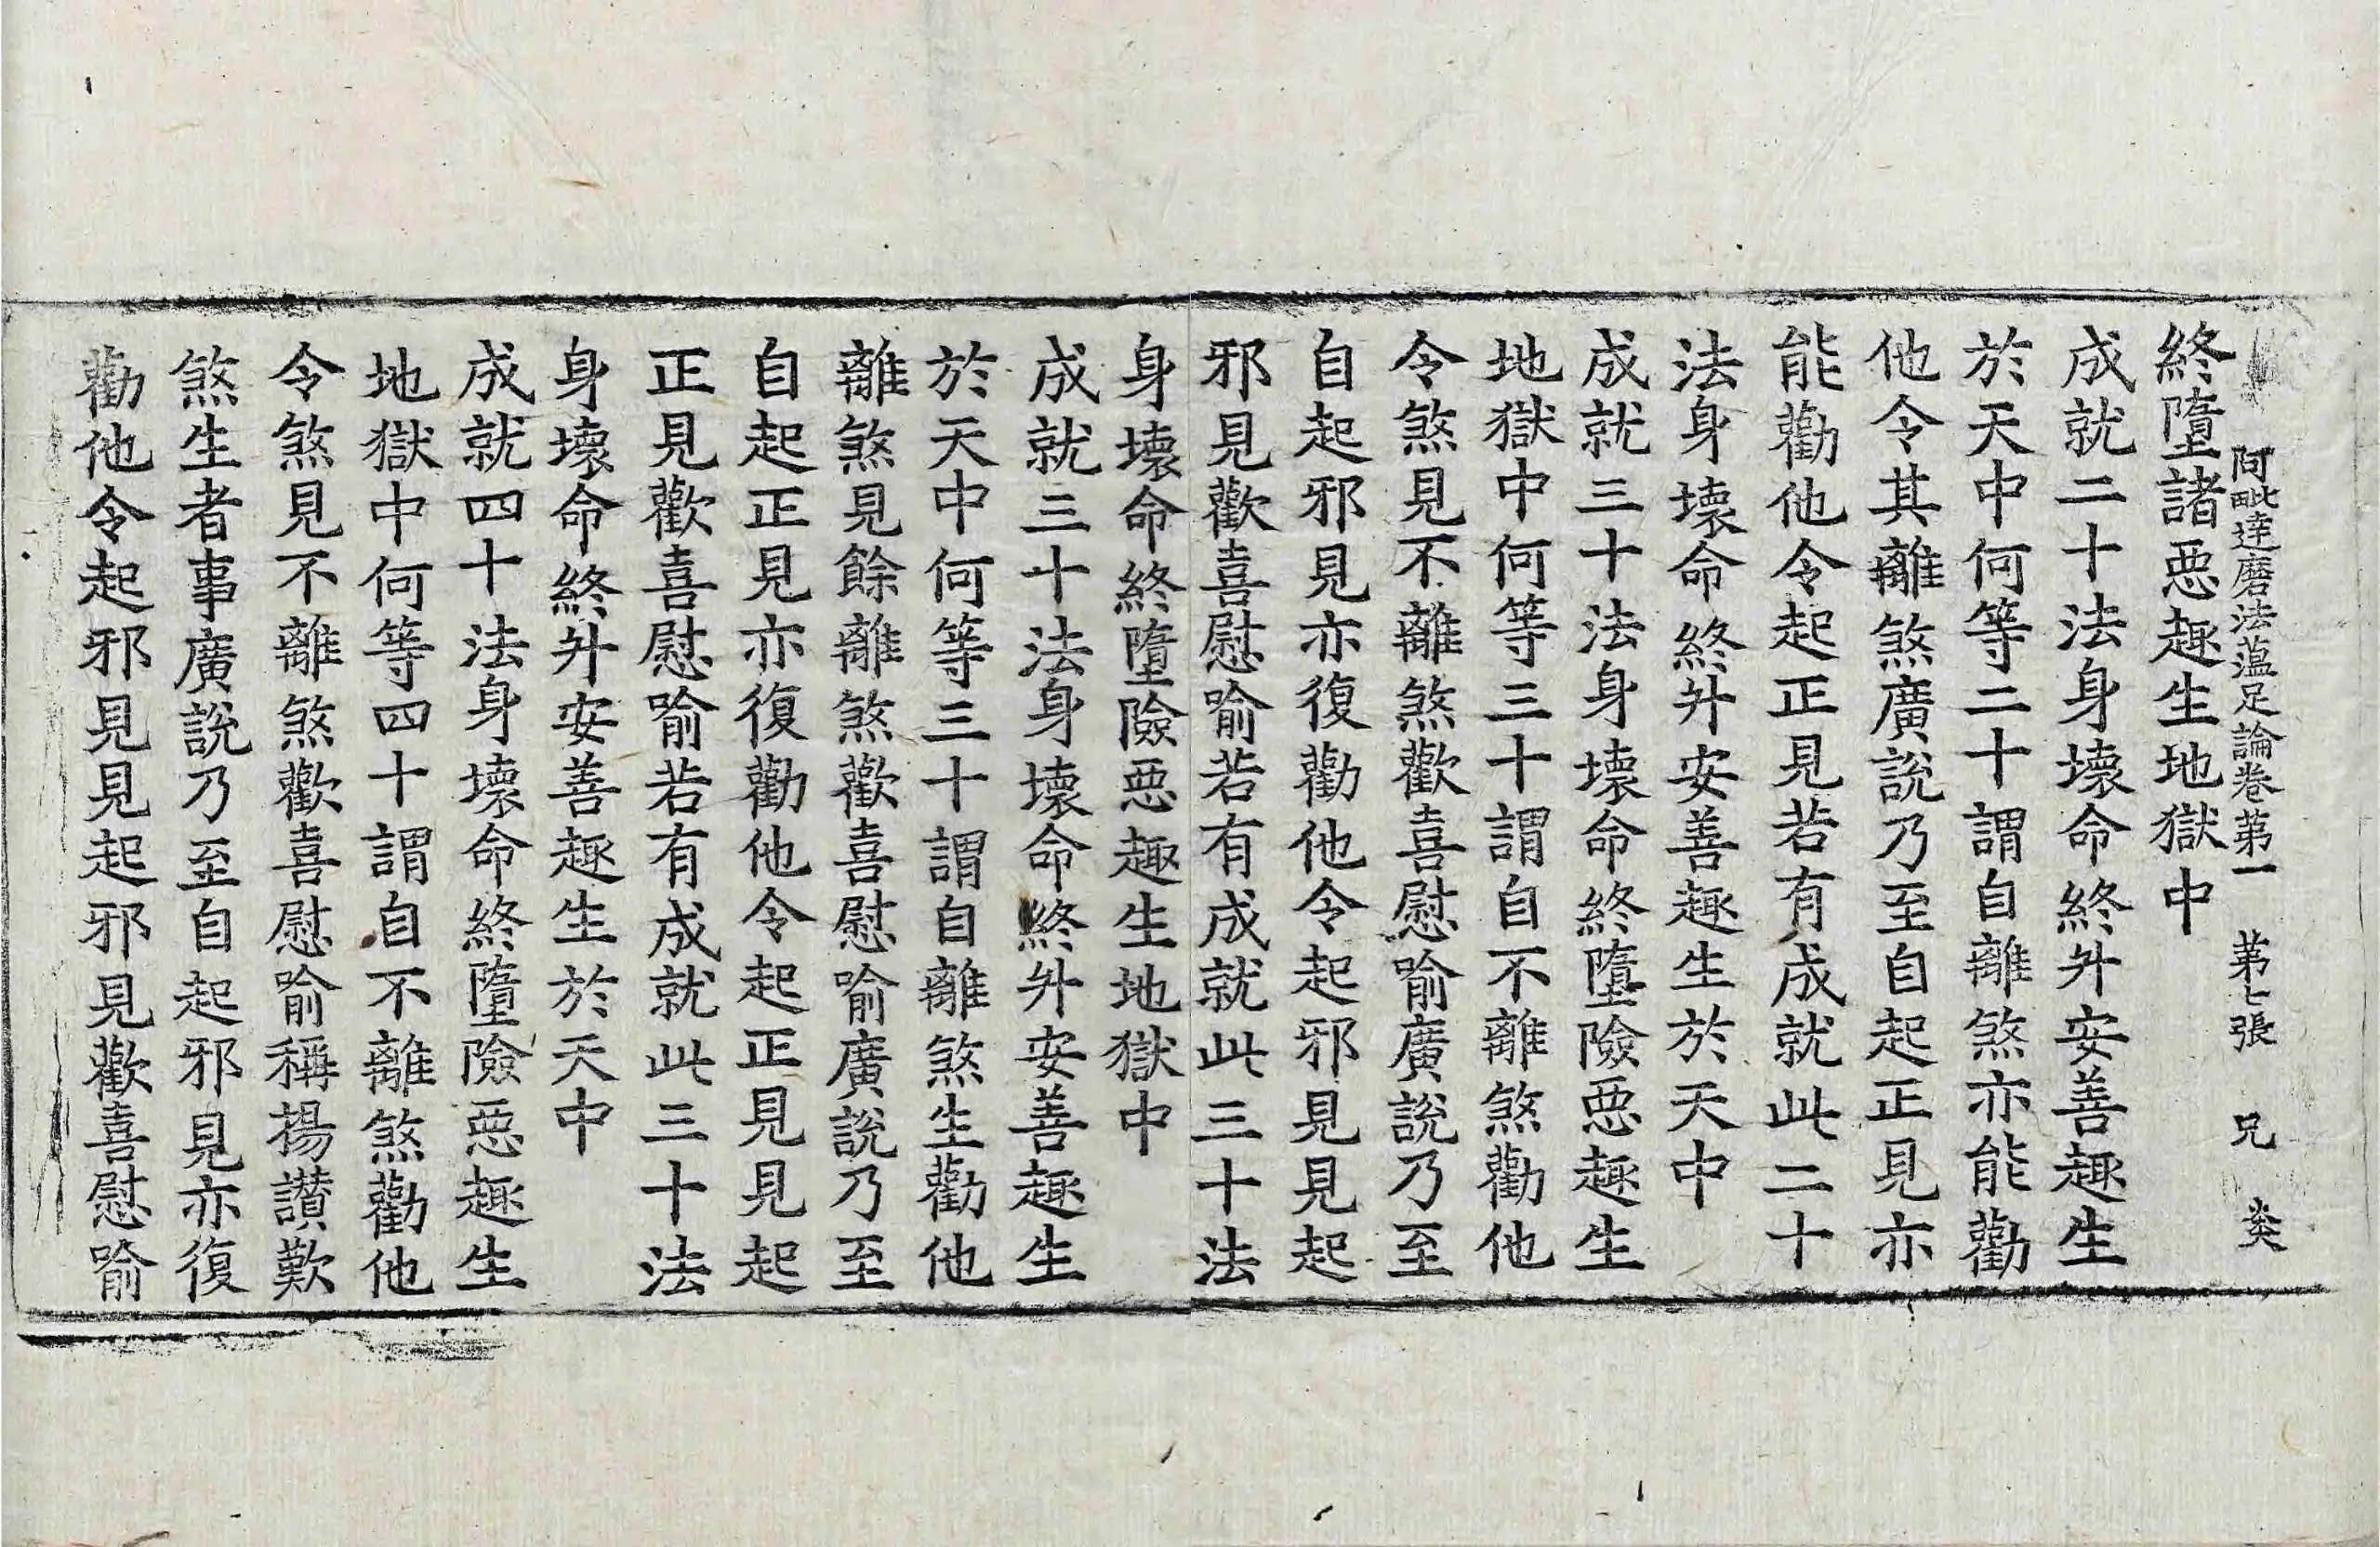 阿毗達磨法蘊足論卷第一　第七張　兄
終墮諸惡趣生地獄中
成就二十法身壞命終升安善趣生
於天中何等二十謂自離煞亦能勸
他令其離煞廣說乃至自起正見亦
能勸他令起正見若有成就此二十
法身壞命終升安善趣生於天中
成就三十法身壞命終墮險惡趣生
地獄中何等三十謂自不離煞勸他
令煞見不離煞歡喜慰喻廣說乃至
自起邪見亦復勸他令起邪見見起
邪見歡喜慰喻若有成就此三十法
身壞命終墮險惡趣生地獄中
成就三十法身壞命終升安善趣生
於天中何等三十謂自離煞生勸他
離煞見餘離煞歡喜慰喻廣說乃至
自起正見亦復勸他令起正見見起
正見歡喜慰喻若有成就此三十法
身壞命終升安善趣生於天中
成就四十法身壞命終墮險惡趣生
地獄中何等四十謂自不離煞勸他
令煞見不離煞歡喜慰喻稱揚讚歎
煞生者事廣說乃至自起邪見亦復
勸他令起邪見見起邪見歡喜慰喻